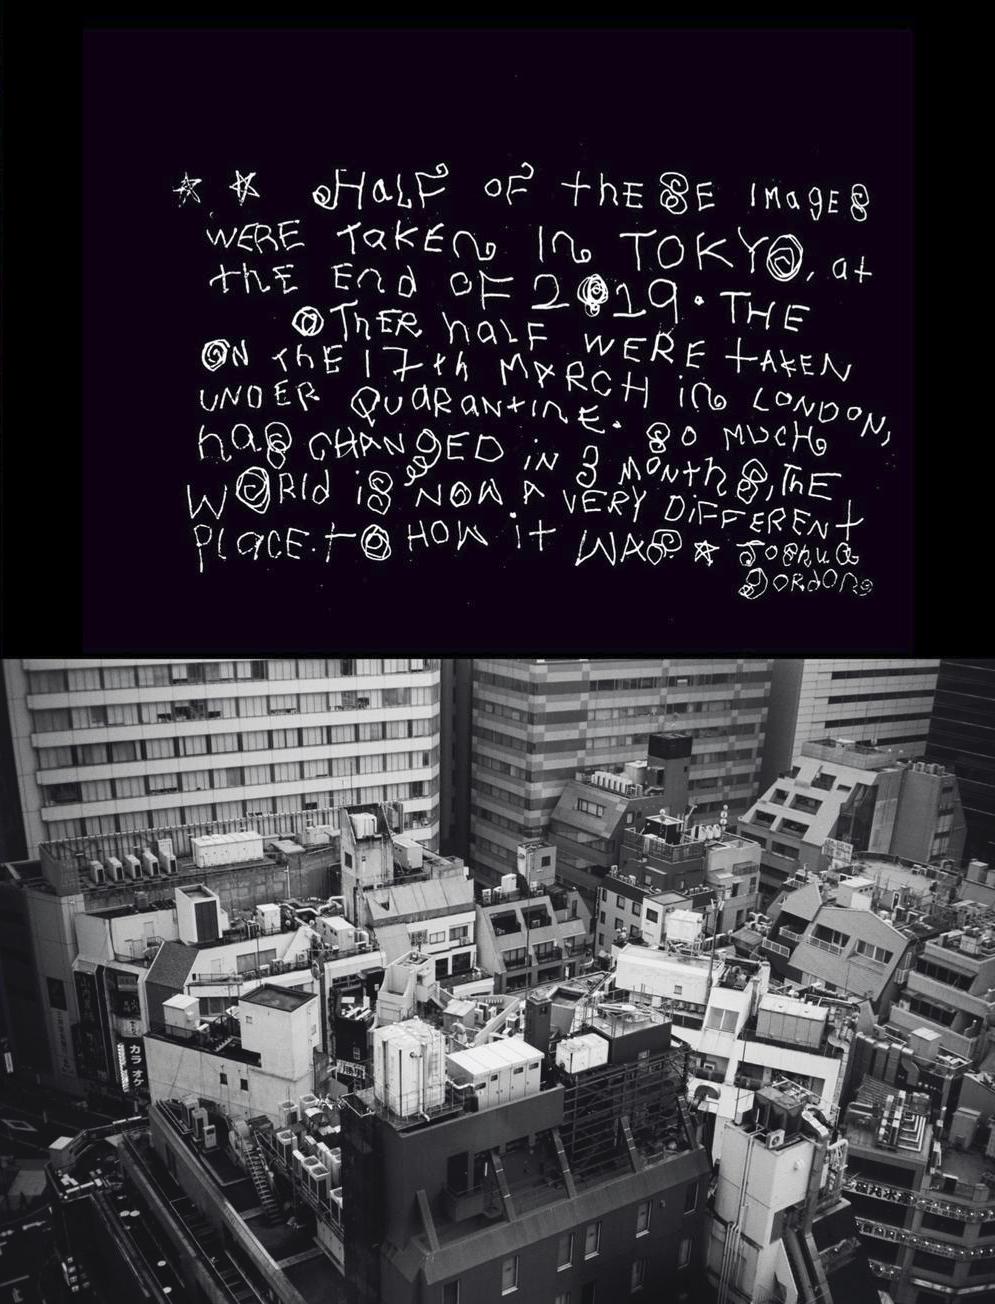 HALF OF thESE IMagES
WERE TaKEN In TOKYO, at
thE End OF 2019. THE
OThER haLF WERE tAKEN
ON thE 17th MARCH in LONDON,
UNDER QUARantinE. SO MUCH
haS CHANgED iN 3 MONthS, ThE
WORld iS NOW A VERY DiFFERENt
PlaCE. tO HOW it WAS Joshua
gordon
カラオケ